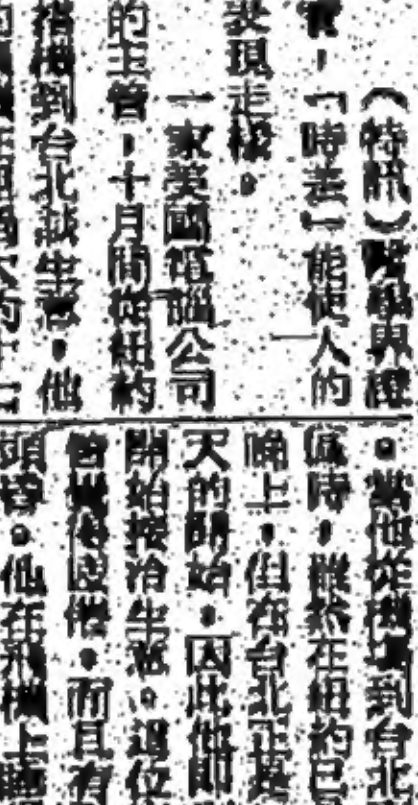 (特訊)醫學界證
實,「時差」能使人的
表現走樣。
一家美國電腦公司
的主管,十月間從紐約
搭機到台北談生意。他
。當他從機場到台北
區時,雖然在紐約已
晚上,但在台北正是
天的開始。因此他即
開始接洽生意。這位
管變得疲倦。而且有
頭昏。他在飛機上睡